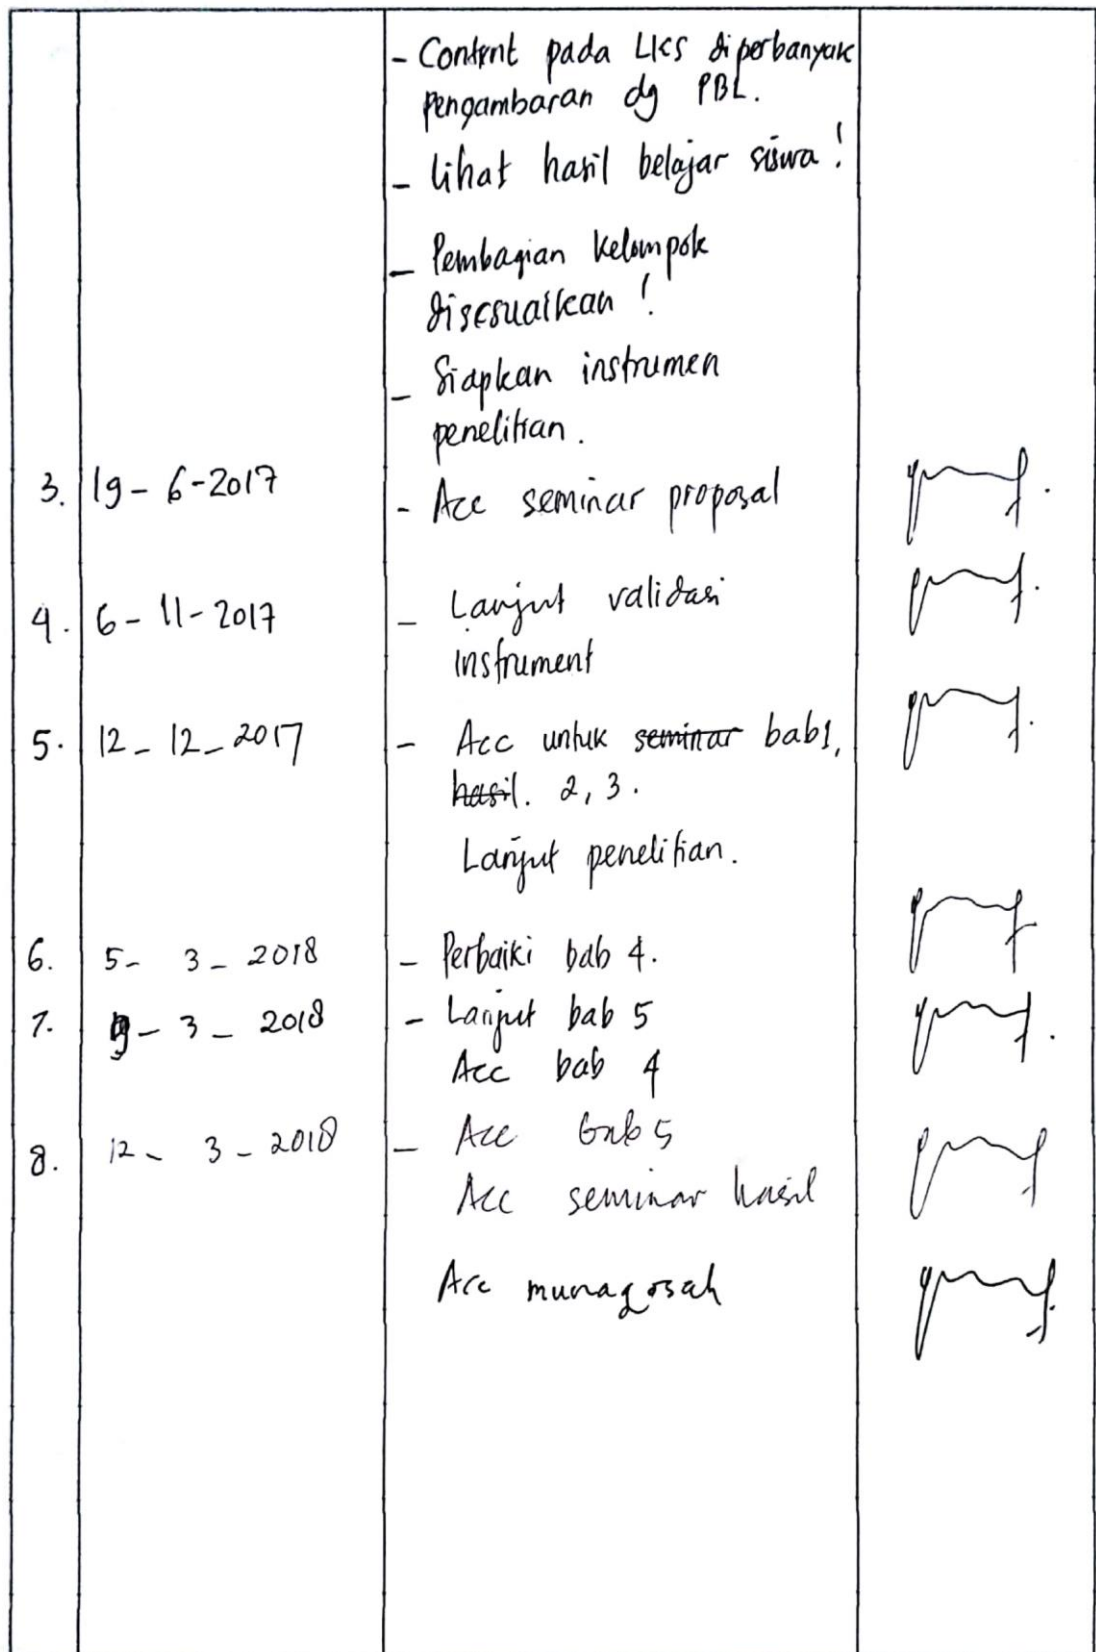 - Content pada LKS diperbanyak
pengambaran dg PBL.
- Lihat hasil belajar siswa !
- Pembagian kelompok
disesuaikan !
- Siapkan instrumen
penelitian.
3. 19 - 6 - 2017 - Acc seminar proposal
4. 6 - 11 - 2017 - Lanjut validasi
instrument
5. 12 - 12 - 2017 - Acc untuk seminar bab 1,
hasil. 2, 3.
Lanjut penelitian.
6. 5 - 3 - 2018 - Perbaiki bab 4.
7. 9 - 3 - 2018 - Lanjut bab 5
Acc bab 4
8. 12 - 3 - 2018 - Acc bab 5
Acc seminar hasil
Acc munaqosah